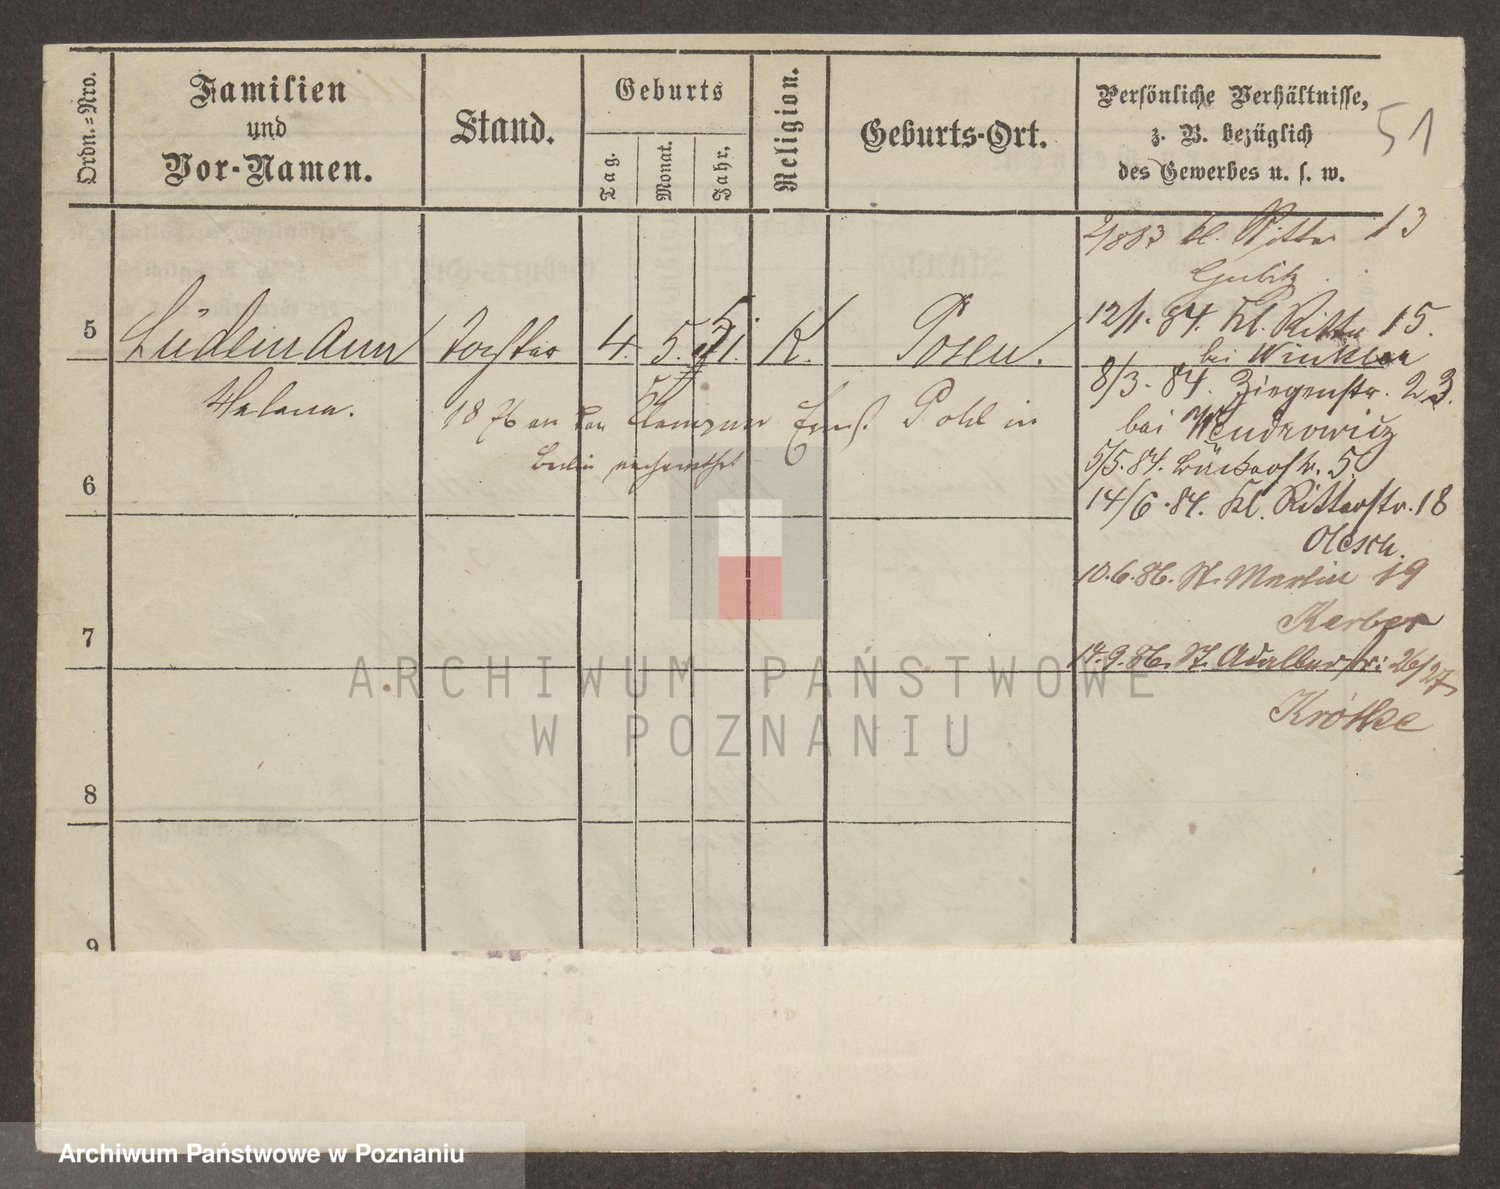 Ordn.=Nro.
Familien
und
Vor-Namen.
Stand.
Geburts
Tag.
Monat.
Jahr.
Religion.
Geburts-Ort.
Persönliche Verhältnisse,
z. B. bezüglich
des Gewerbes u. s. w.
51
kl. Ritter 13
Gubitz
5
Lüdemann Tochter 4. 5. 51. K. Posen.
12/1. 84. Kl. Ritter 15.
bei Winkler
Helena.
8/3. 84. Ziegenstr. 23.
1876 an den Klempner Ernst Pohl in
bei Wendrowicz
Berlin verheirathet
5/5. 84. Bäckerstr. 5.
6
14/6. 84. Kl. Ritterstr. 18
Olesch.
10.6.86. St. Martin 19
Kerber
7
14.9.86. St. Adalbertstr: 26/27
Krötke
ARCHIWUM PAŃSTWOWE
W POZNANIU
8
9
Archiwum Państwowe w Poznaniu